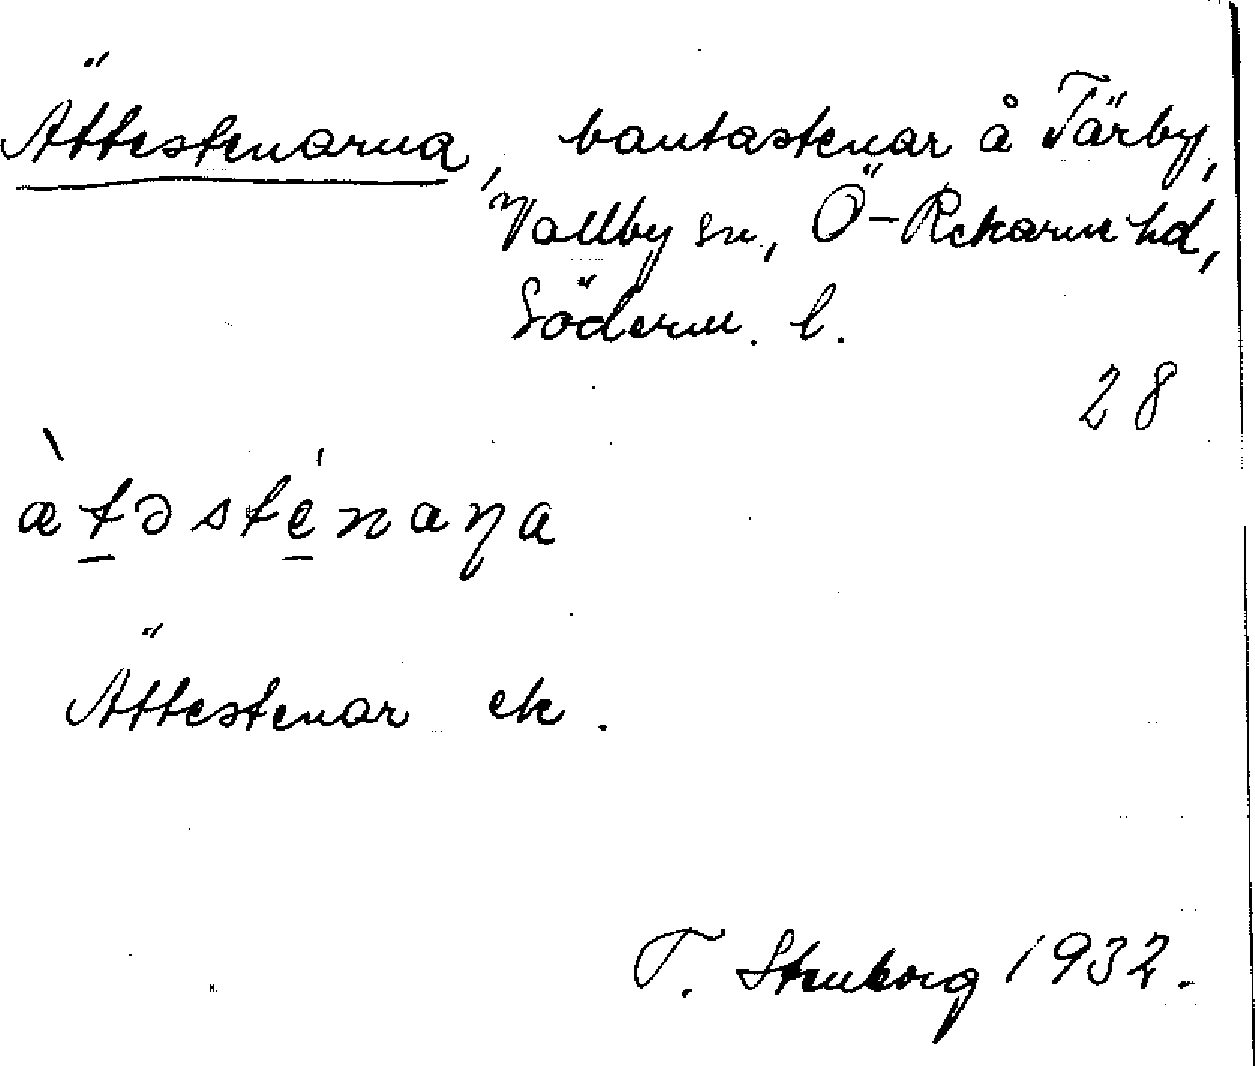 Ättestenarna, bautastenar å Tärby,
Vallby sn., Ö-Rekarne hd,
Söderm. l.
28
ætəsténaɳa
Ättestenar ek.
T. Stenborg 1932.